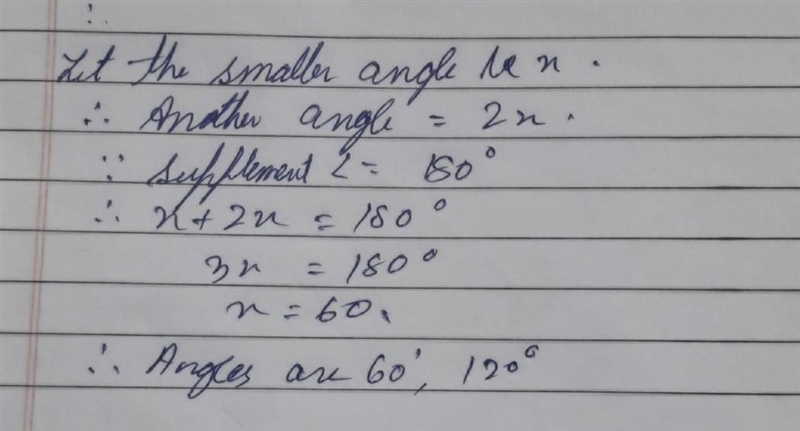 ∴
Let the smaller angle be x.
∴ Another angle = 2x.
∵ Supplement ∠ = 180°
∴ x + 2x = 180°
3x = 180°
x = 60.
∴ Angles are 60°, 120°